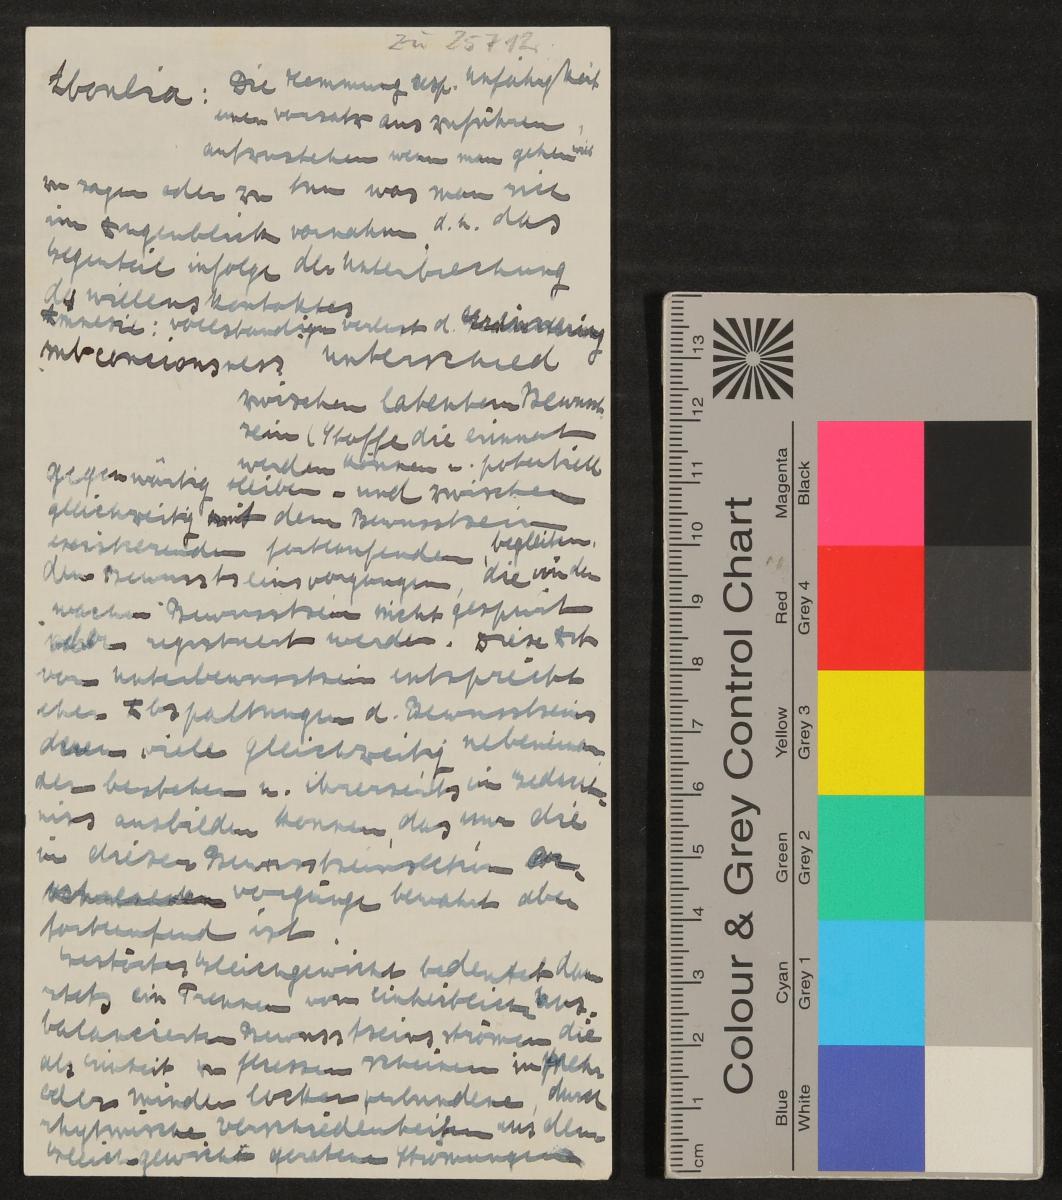 zu 25712.
Aboulia: Die Hemmung resp. Unfähigkeit
einen Vorsatz auszuführen,
aufzustehen wenn man gehen will
zu sagen oder zu tun was man sich
im Augenblick vornahm d.h. das
Gegenteil infolge der Unterbrechung
des Willenskontaktes
Amnesie: vollständiger Verlust d. Erinnerung
subconciousness Unterschied
zwischen latentem Bewusst
sein (Stoffe die erinnert
werden können u. potentiell
gegenwärtig bleiben - und zwischen
gleichzeitig mit dem Bewusstsein
existierenden fortlaufenden, begleiten.
den Bewusstseinsvorgängen, die von dem
wachen Bewusstsein nicht gespürt
oder registriert werden. Diese Art
von Unterbewusstsein entspricht
eher Abspaltungen d. Bewusstseins
deren viele gleichzeitig nebeneinan
der bestehen u. ihrerseits ein Gedächt-
niss ausbilden können, das nur die
in dieser Bewusstseinsschein
Vorgänge bewahrt aber
fortlaufend ist
Gestörtes Gleichgewicht bedeutet dann
stets ein Trennen von einheitlich aus-
balancierten Bewusstseinsströmen die
als Einheit zu fliessen scheinen in mehr
oder minder locker verbundene, durch
rhytmische Verschiedenheiten aus dem
Gleichgewicht geratene Strömungen